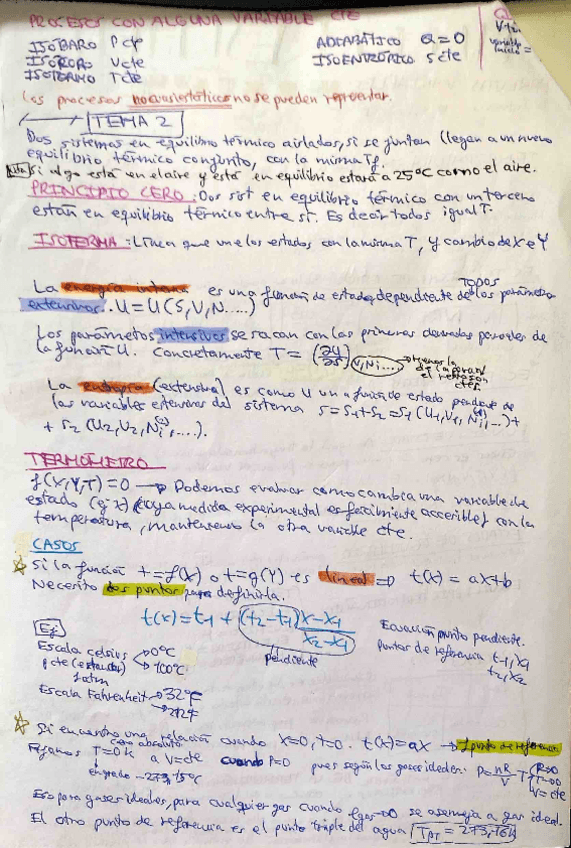 PROCESOS CON ALGUNA VARIABLE CTE
ISÓBARO P cte ADIABÁTICO Q=0
ISÓCORO V cte ISOENTRÓPICO S cte
ISOTERMO T cte
Los procesos no cuasiestáticos no se pueden representar.
TEMA 2
Dos sistemas en equilibrio térmico aislados, si se juntan llegan a un nuevo
equilibrio térmico conjunto, con la misma Tf.
Nota si algo está en el aire y está en equilibrio estará a 25ºC como el aire.
PRINCIPIO CERO: Dos sist en equilibrio térmico con un tercero
están en equilibrio térmico entre sí. Es decir todos igual T.
ISOTERMA: Línea que une los estados con la misma T, y cambio de X e Y
La energía interna es una función de estado dependiente de TODOS los parámetros
extensivos. U = U(S,V,N.....)
Los parámetros intensivos se sacan con las primeras derivadas parciales de
la función U. Concretamente T = (∂U/∂S) V,Ni...
La entropía (extensiva) es como U una función de estado
las variables extensivas del sistema S = S1+S2 = S1(U1,V1,Ni(1),...)+
+ S2 (U2,V2,Ni(2),....).
TERMÓMETRO
f(X,Y,T)=0 → Podemos evaluar como cambia una variable de
estado (ej: x) (cuya medida experimental es fácilmente accesible) con la
temperatura, manteniendo la otra variable cte.
CASOS
Si la función t=f(X) o t=g(Y) es lineal ⇒ t(x) = ax+b
Necesito dos puntos para definirla.
t(x) = t1 + (t2-t1) x-x1 / x2-x1
pendiente
Ecuación punto pendiente.
Puntos de referencia t1, x1
t2, x2
Ej
Escala Celsius → 0ºC
p cte (estandar) → 100ºC
1 atm
Escala Fahrenheit → 32ºF
→ 212ºF
Si encuentro una relación cuando X=0, t=0. t(x)=ax → 1 punto de referencia
Fijamos T=0K cero absoluto a V=cte cuando P=0 pues según los gases ideales: P = nR/V T
en grado -273,15ºC
V=cte
Eso para gases ideales, para cualquier gas cuando se asemeja a gas ideal.
El otro punto de referencia es el punto triple del agua TPT = 273,16K